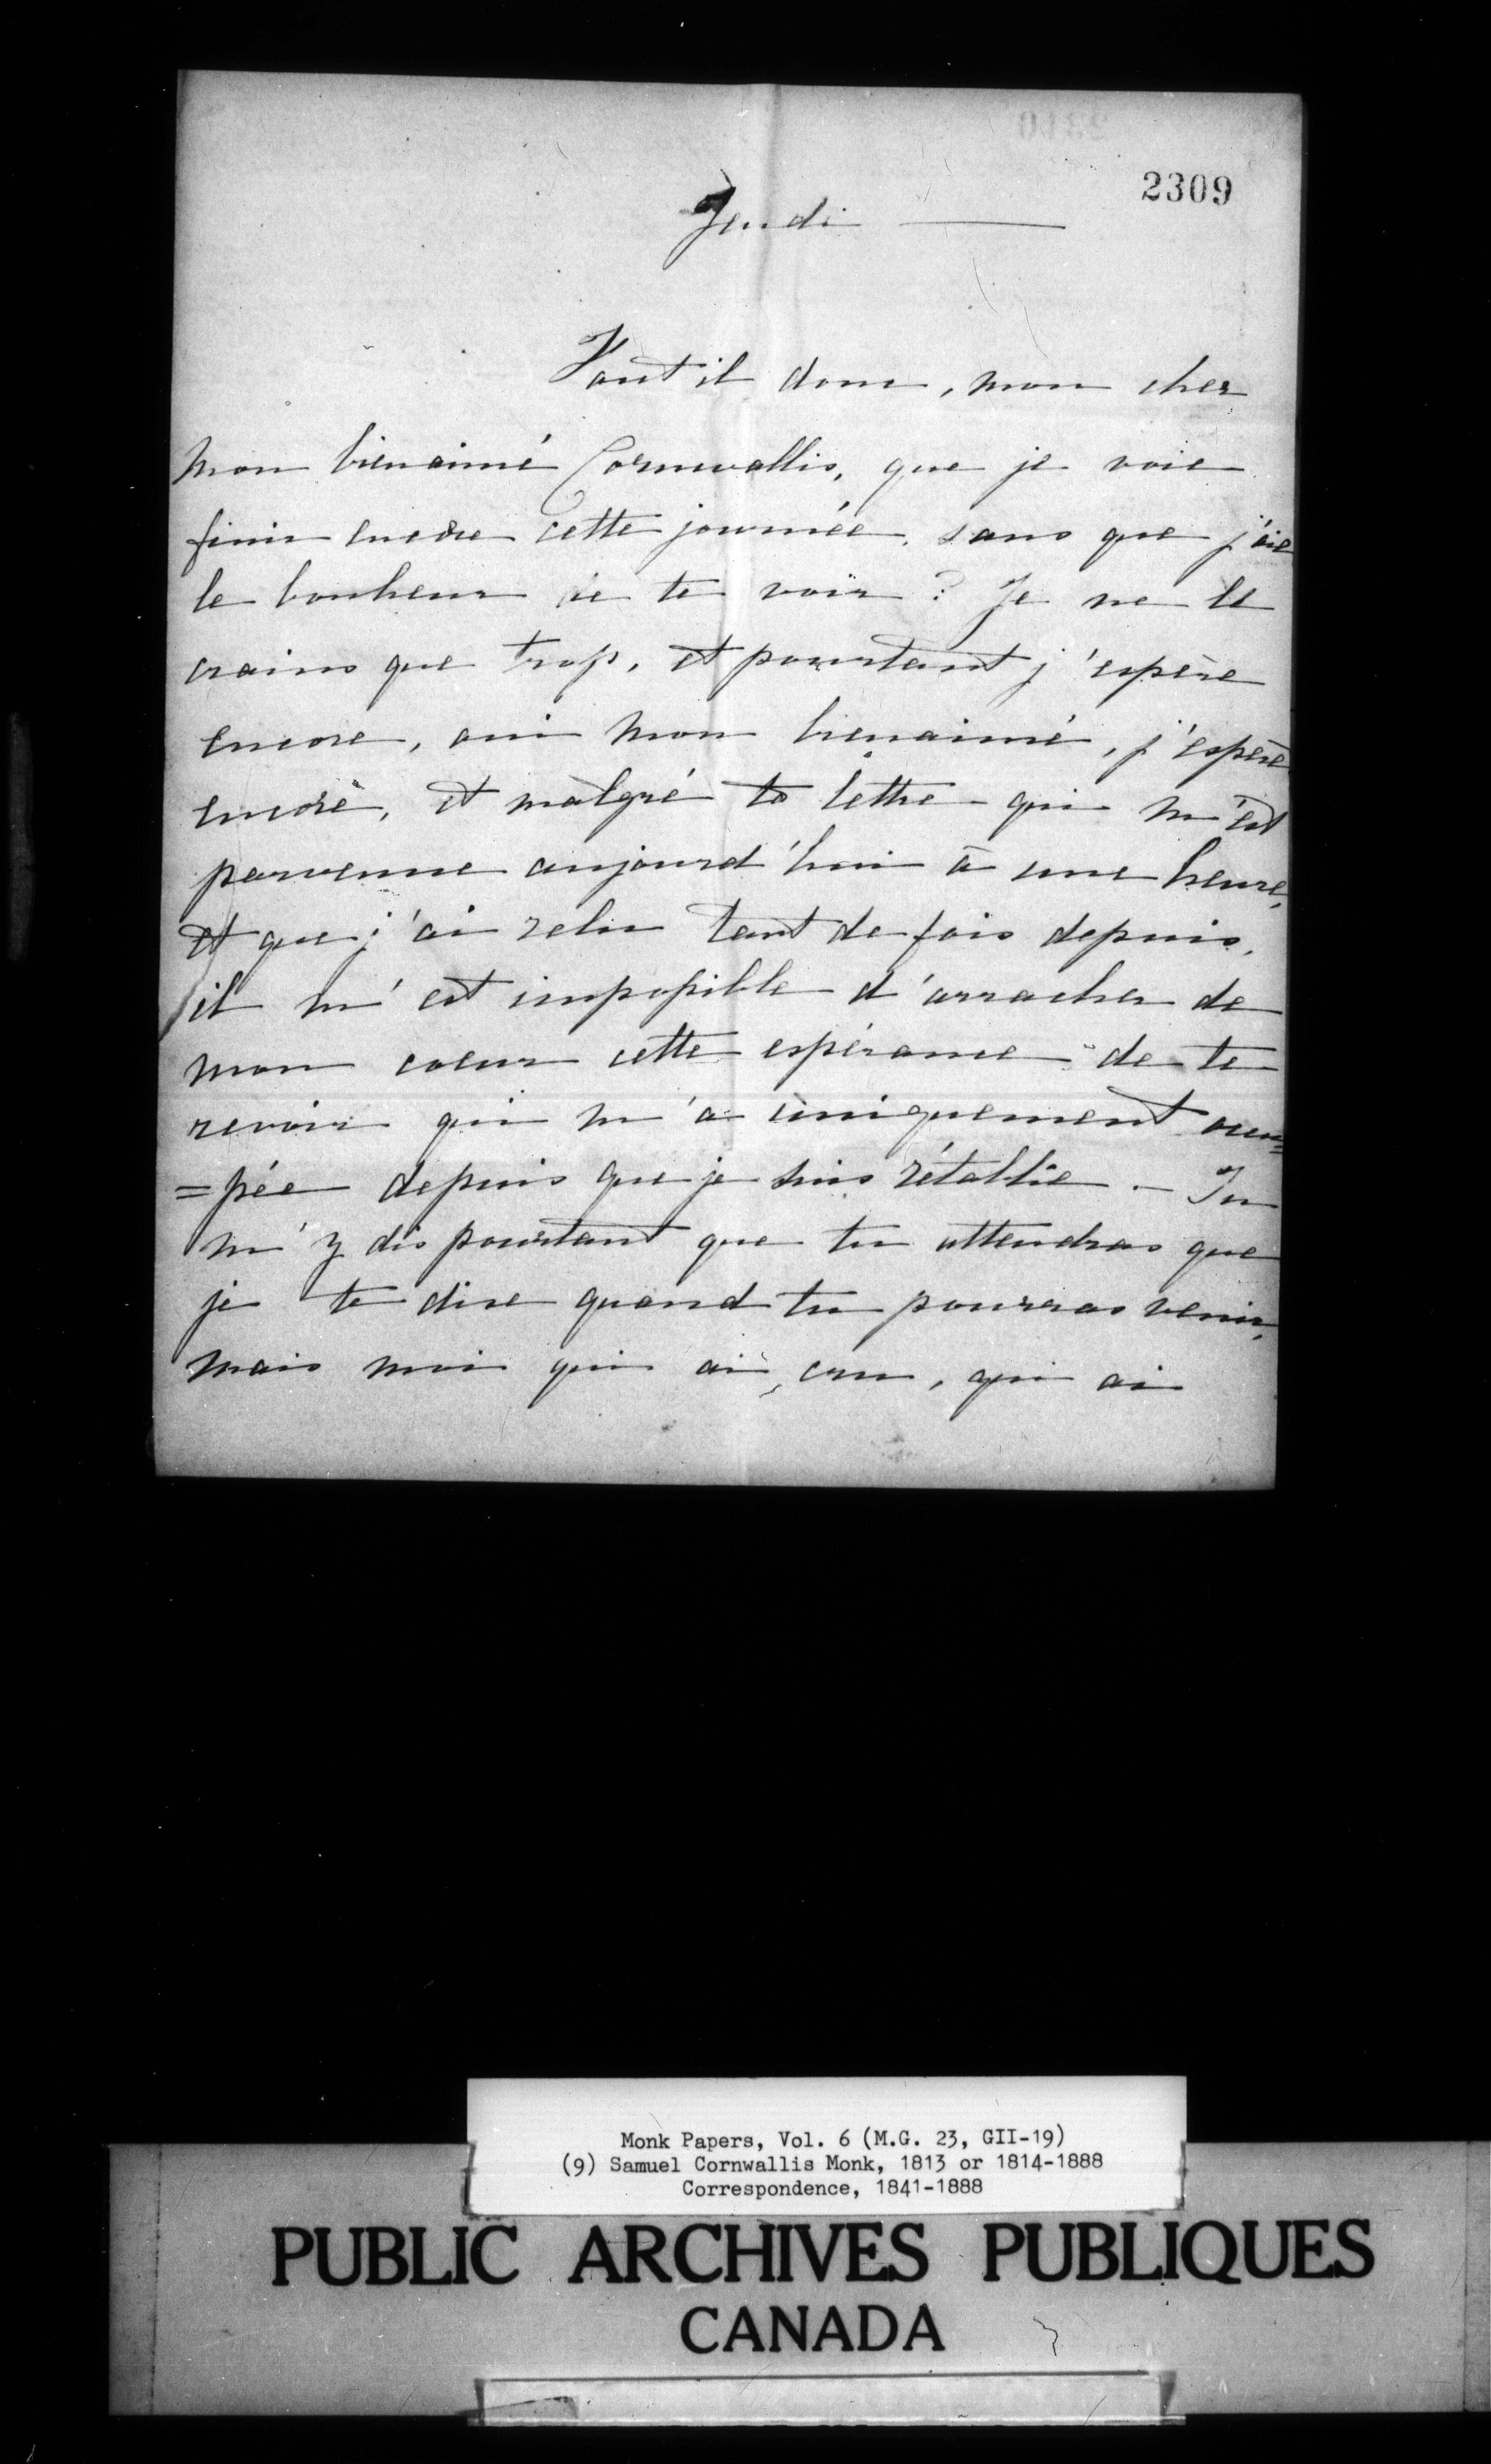 2309
Jeudi
Faut il donc, mon cher
mon bienaimé Cornwallis, que je voie
finir encore cette journée, sans que j'aie
le bonheur de te voir ? Je ne le
crains que trop, et pourtant j'espère
encore, oui mon bienaimé, j'espère
encore, et malgré ta lettre qui m'est
parvenue aujourd'hui à une heure,
et que j'ai relu tant de fois depuis,
il m'est impossible d'arracher de
mon coeur cette espérance de te
revoir qui m'a uniquement occu=
=pée depuis que je suis rétablie. — Tu
m'y dis pourtant que tu attendras que
je te dise quand tu pourras venir,
mais moi qui ai cru, qui ai
Monk Papers, Vol. 6 (M.G. 23, GII-19)
(9) Samuel Cornwallis Monk, 1813 or 1814-1888
Correspondence, 1841-1888
PUBLIC ARCHIVES PUBLIQUES
CANADA